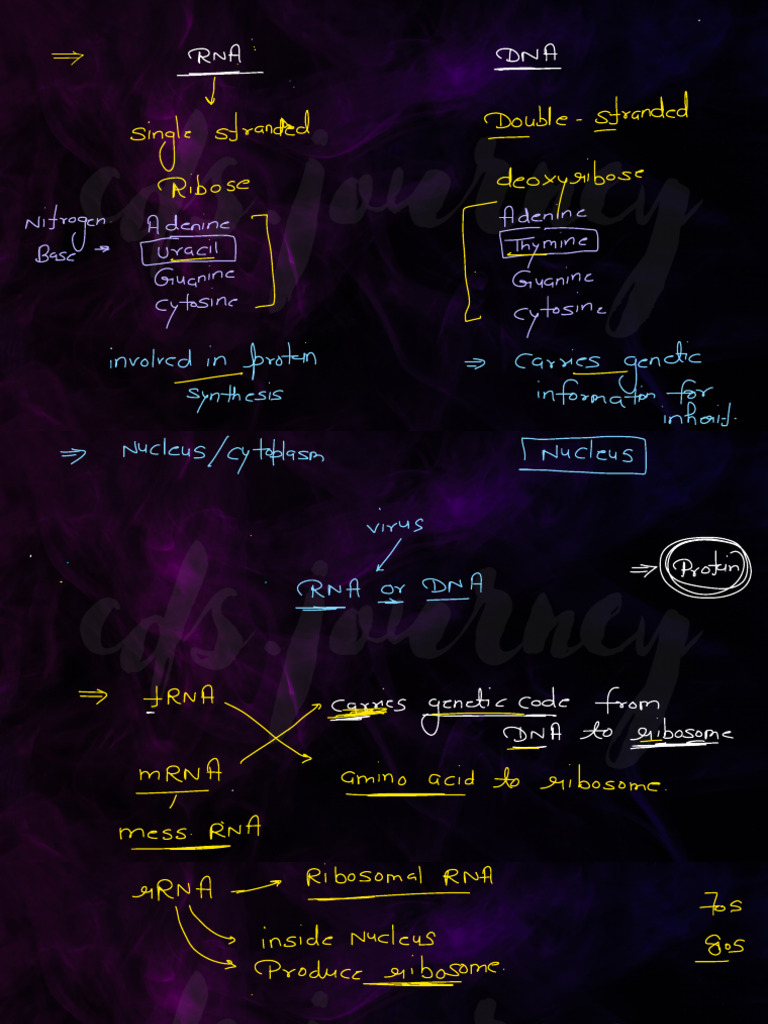 ⇒ RNA DNA
Single stranded Double-stranded
Ribose deoxyribose
Nitrogen Base → Adenine Adenine
Uracil Thymine
Guanine Guanine
Cytosine Cytosine
involved in protein ⇒ Carries genetic
synthesis information for
inherit.
⇒ Nucleus/cytoplasm Nucleus
virus
RNA or DNA
⇒ Protein
⇒ tRNA carries genetic code from
DNA to ribosome
mRNA amino acid to ribosome.
mess. RNA
rRNA → Ribosomal RNA
inside Nucleus
Produce ribosome.
70s
80s
cds.journey
cds.journey